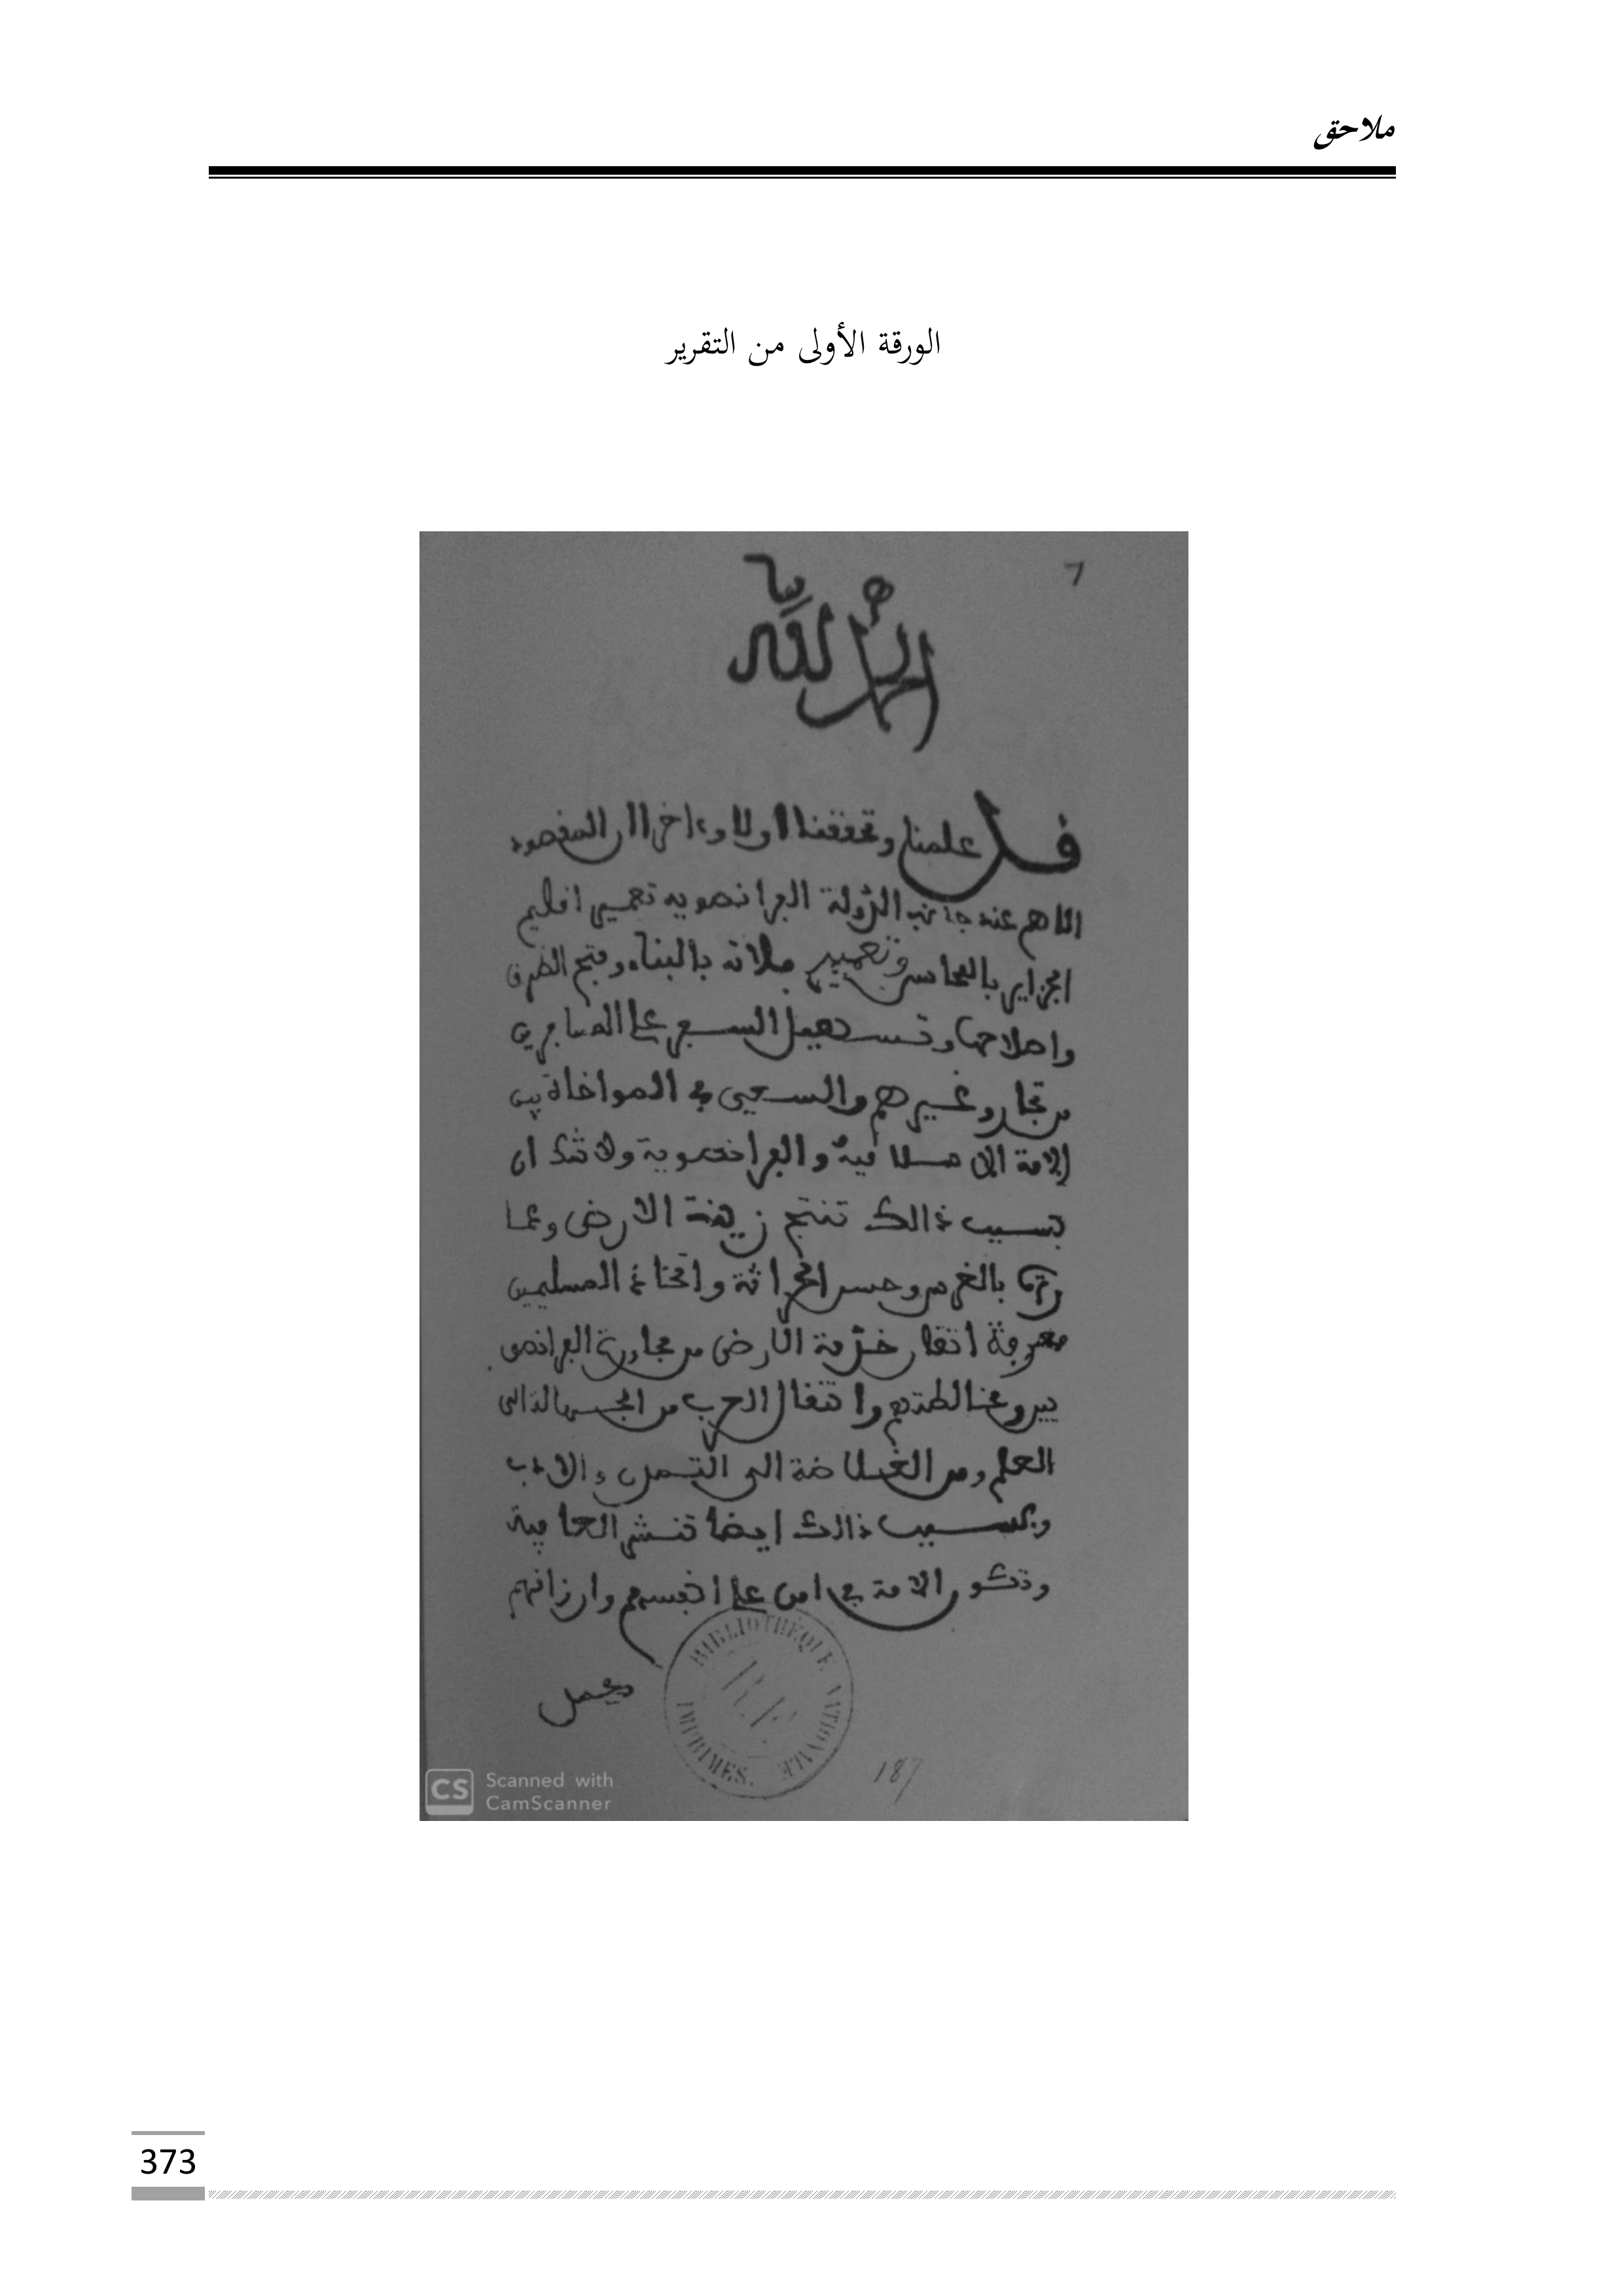 ملاحق
الورقة الأولى من التقرير
7
الحمد لله
قد علمنا وتحققنا اولا وءاخرا ان المقصود
الاهم عند جانب الدولة الفرانصويه تعمير اقليم
الجزاير بالمحاسن وتعمير فلاته بالبناء وفتح الطرق
واصلاحها وتسهيل السفر على المسافرين
من تجار وغيرهم والسعي في المواخاة بين
الامة الاسلامية والفرانصوية ولا شك ان
بسبب ذالك تنتج زينة الارض وعما
رتها بالغرس وحسن الحراثة واتخاذ المسلمين
معرفة اتقان خدمة الارض من مجاورة الفرانصو
يين ومخالطتهم وانتقال العرب من الجهل الى
العلم ومن الغلاضة الى التمدن والادب
وبسبب ذالك ايضا تنشر العافية
وتكون الامة في امن على انفسهم وارزاقهم
BIBLIOTHÈQUE NATIONALE
R.F.
IMPRIMÉS.
187
CS Scanned with
CamScanner
373